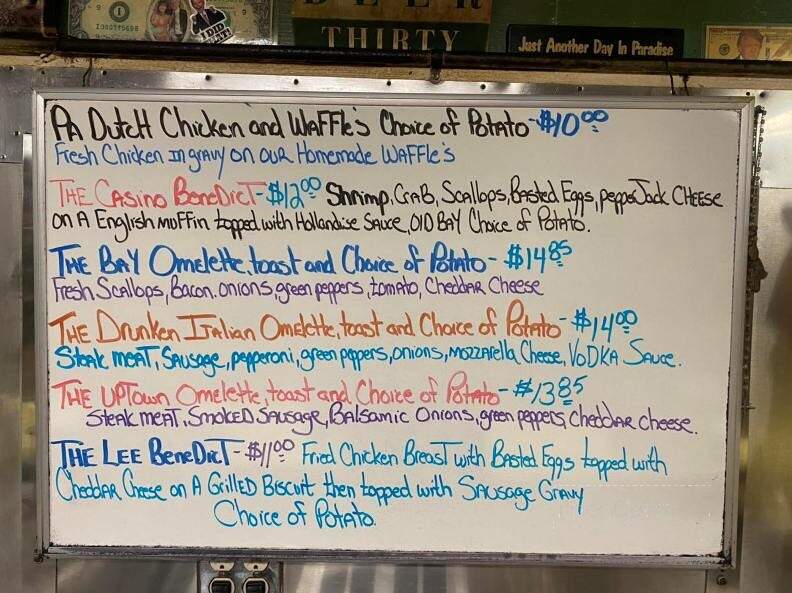 I DID THAT!
BEER
THIRTY
Just Another Day In Paradise
PA Dutch Chicken and Waffle's Choice of Potato - $10.00
Fresh Chicken in gravy on our Homemade Waffle's
The Casino Benedict - $12.00 Shrimp, Crab, Scallops, Basted Eggs, pepper Jack Cheese
on A English muffin topped with Hollandise Sauce, Old Bay Choice of Potato.
The Bay Omelette, toast and Choice of Potato - $14.85
Fresh Scallops, Bacon, onions, green peppers, tomato, Cheddar Cheese
The Drunken Italian Omelette, toast and Choice of Potato - $14.00
Steak meat, Sausage, pepperoni, green peppers, onions, mozzarella Cheese, Vodka Sauce.
The Uptown Omelette, toast and Choice of Potato - $13.85
Steak meat, Smoked Sausage, Balsamic Onions, green peppers, Cheddar cheese.
The Lee Benedict - $11.00 Fried Chicken Breast with Basted Eggs topped with
Cheddar Cheese on A Grilled Biscuit then topped with Sausage Gravy
Choice of Potato.